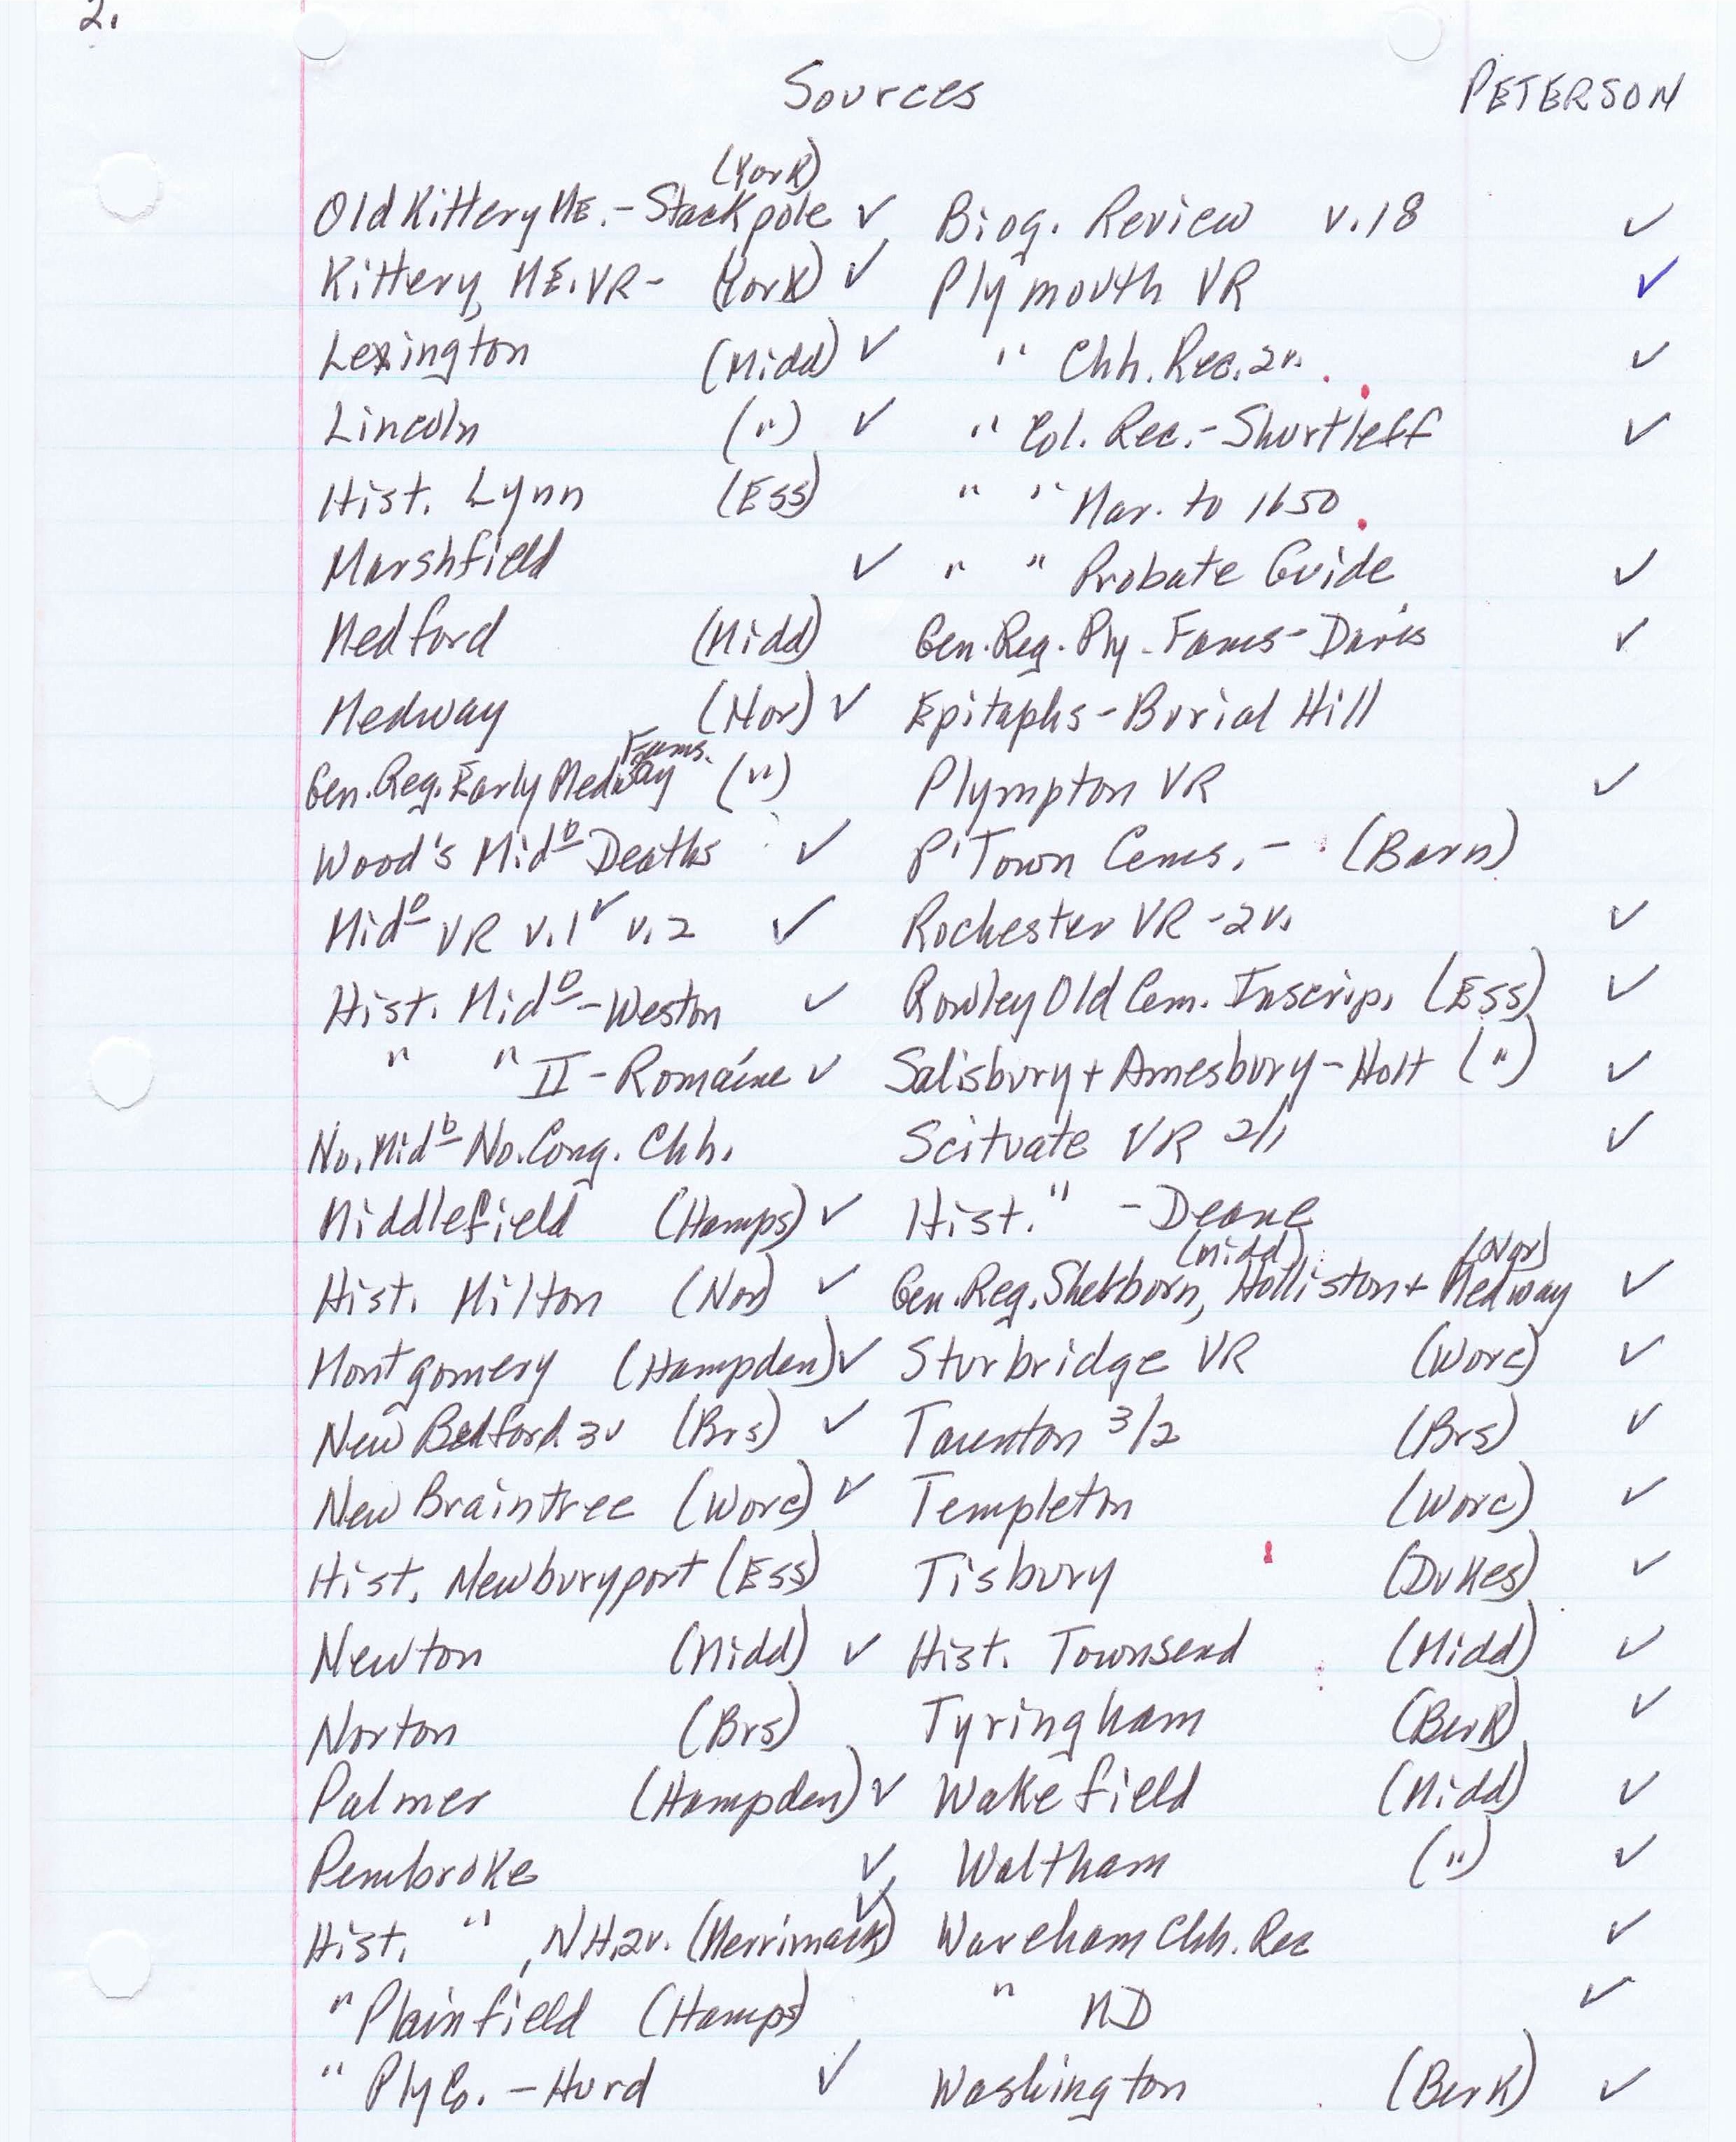 2.
Sources
PETERSON
(York)
Old Kittery ME. - Stackpole ✓
Kittery, ME. VR - (York) ✓
Lexington (Midd) ✓
Lincoln (") ✓
Hist. Lynn (Ess)
Marshfield ✓
Medford (Midd)
Medway (Nor) ✓
Fams.
Gen. Reg. Early Medway (")
Wood's Midᵇ Deaths ✓
Midᵒ VR v.1 ✓ v.2 ✓
Hist. Midᵒ - Weston ✓
" " II - Romaine ✓
No. Midᵇ No. Cong. Chh.
Middlefield (Hamps) ✓
Hist. Milton (Nor) ✓
Montgomery (Hampden) ✓
New Bedford 3v (Brs) ✓
New Braintree (Worc) ✓
Hist. Newburyport (Ess)
Newton (Midd) ✓
Norton (Brs)
Palmer (Hampden) ✓
Pembroke ✓
Hist. " , NH. 2v. (Merrimack) ✓
" Plainfield (Hamps)
" Ply Co. - Hurd ✓
Biog. Review v.18 ✓
Plymouth VR ✓
" Chh. Rec. 2v. ✓
" Col. Rec. - Shurtleff ✓
" " Mar. to 1650
" " Probate Guide ✓
Gen. Reg. Ply. Fams - Davis ✓
Epitaphs - Burial Hill
Plympton VR ✓
P'Town Cems. - (Barn)
Rochester VR - 2v. ✓
Rowley Old Cem. Inscrip. (Ess) ✓
Salisbury + Amesbury - Holt (") ✓
Scituate VR 2/1 ✓
Hist. " - Deane
(Midd) (Nor)
Gen. Reg. Sherborn, Holliston + Medway ✓
Sturbridge VR (Worc) ✓
Taunton 3/2 (Brs) ✓
Templeton (Worc) ✓
Tisbury (Dukes) ✓
Hist. Townsend (Midd) ✓
Tyringham (Berk) ✓
Wakefield (Midd) ✓
Waltham (") ✓
Wareham Chh. Rec ✓
" ND ✓
Washington (Berk) ✓